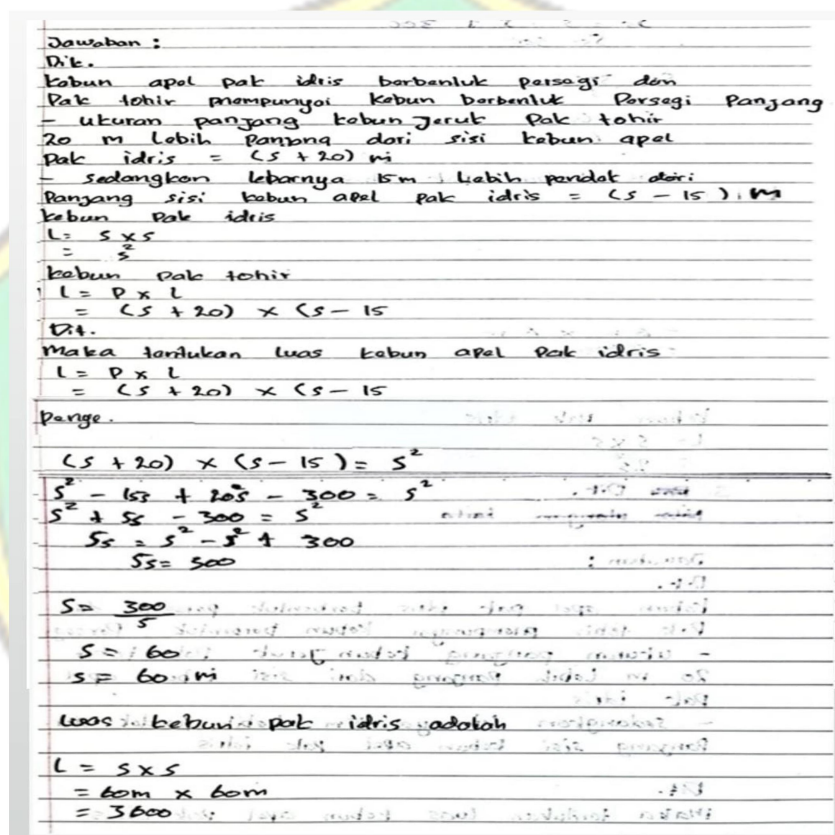 Jawaban :
Dik.
kebun apel pak idris berbentuk persegi dan
Pak tohir mempunyai kebun berbentuk Persegi Panjang
- ukuran panjang kebun Jeruk Pak tohir
20 m Lebih Panjang dari sisi kebun apel
Pak idris = (s + 20) m
- sedangkan lebarnya 15m Lebih pendek dari
Panjang sisi kebun apel pak idris = (s - 15) m
kebun Pak idris
L = s x s
= s²
kebun Pak tohir
l = P x l
= (s + 20) x (s - 15
Dit.
Maka tentukan luas kebun apel Pak idris
l = P x l
= (s + 20) x (s - 15
Penye.
(s + 20) x (s - 15) = s²
s² - 15s + 20s - 300 = s²
s² + 5s - 300 = s²
5s = s² - s² + 300
5s = 300
s = 300
5
s = 60
s = 60 m
Luas kebun pak idris adalah
L = s x s
= 60m x 60m
= 3600